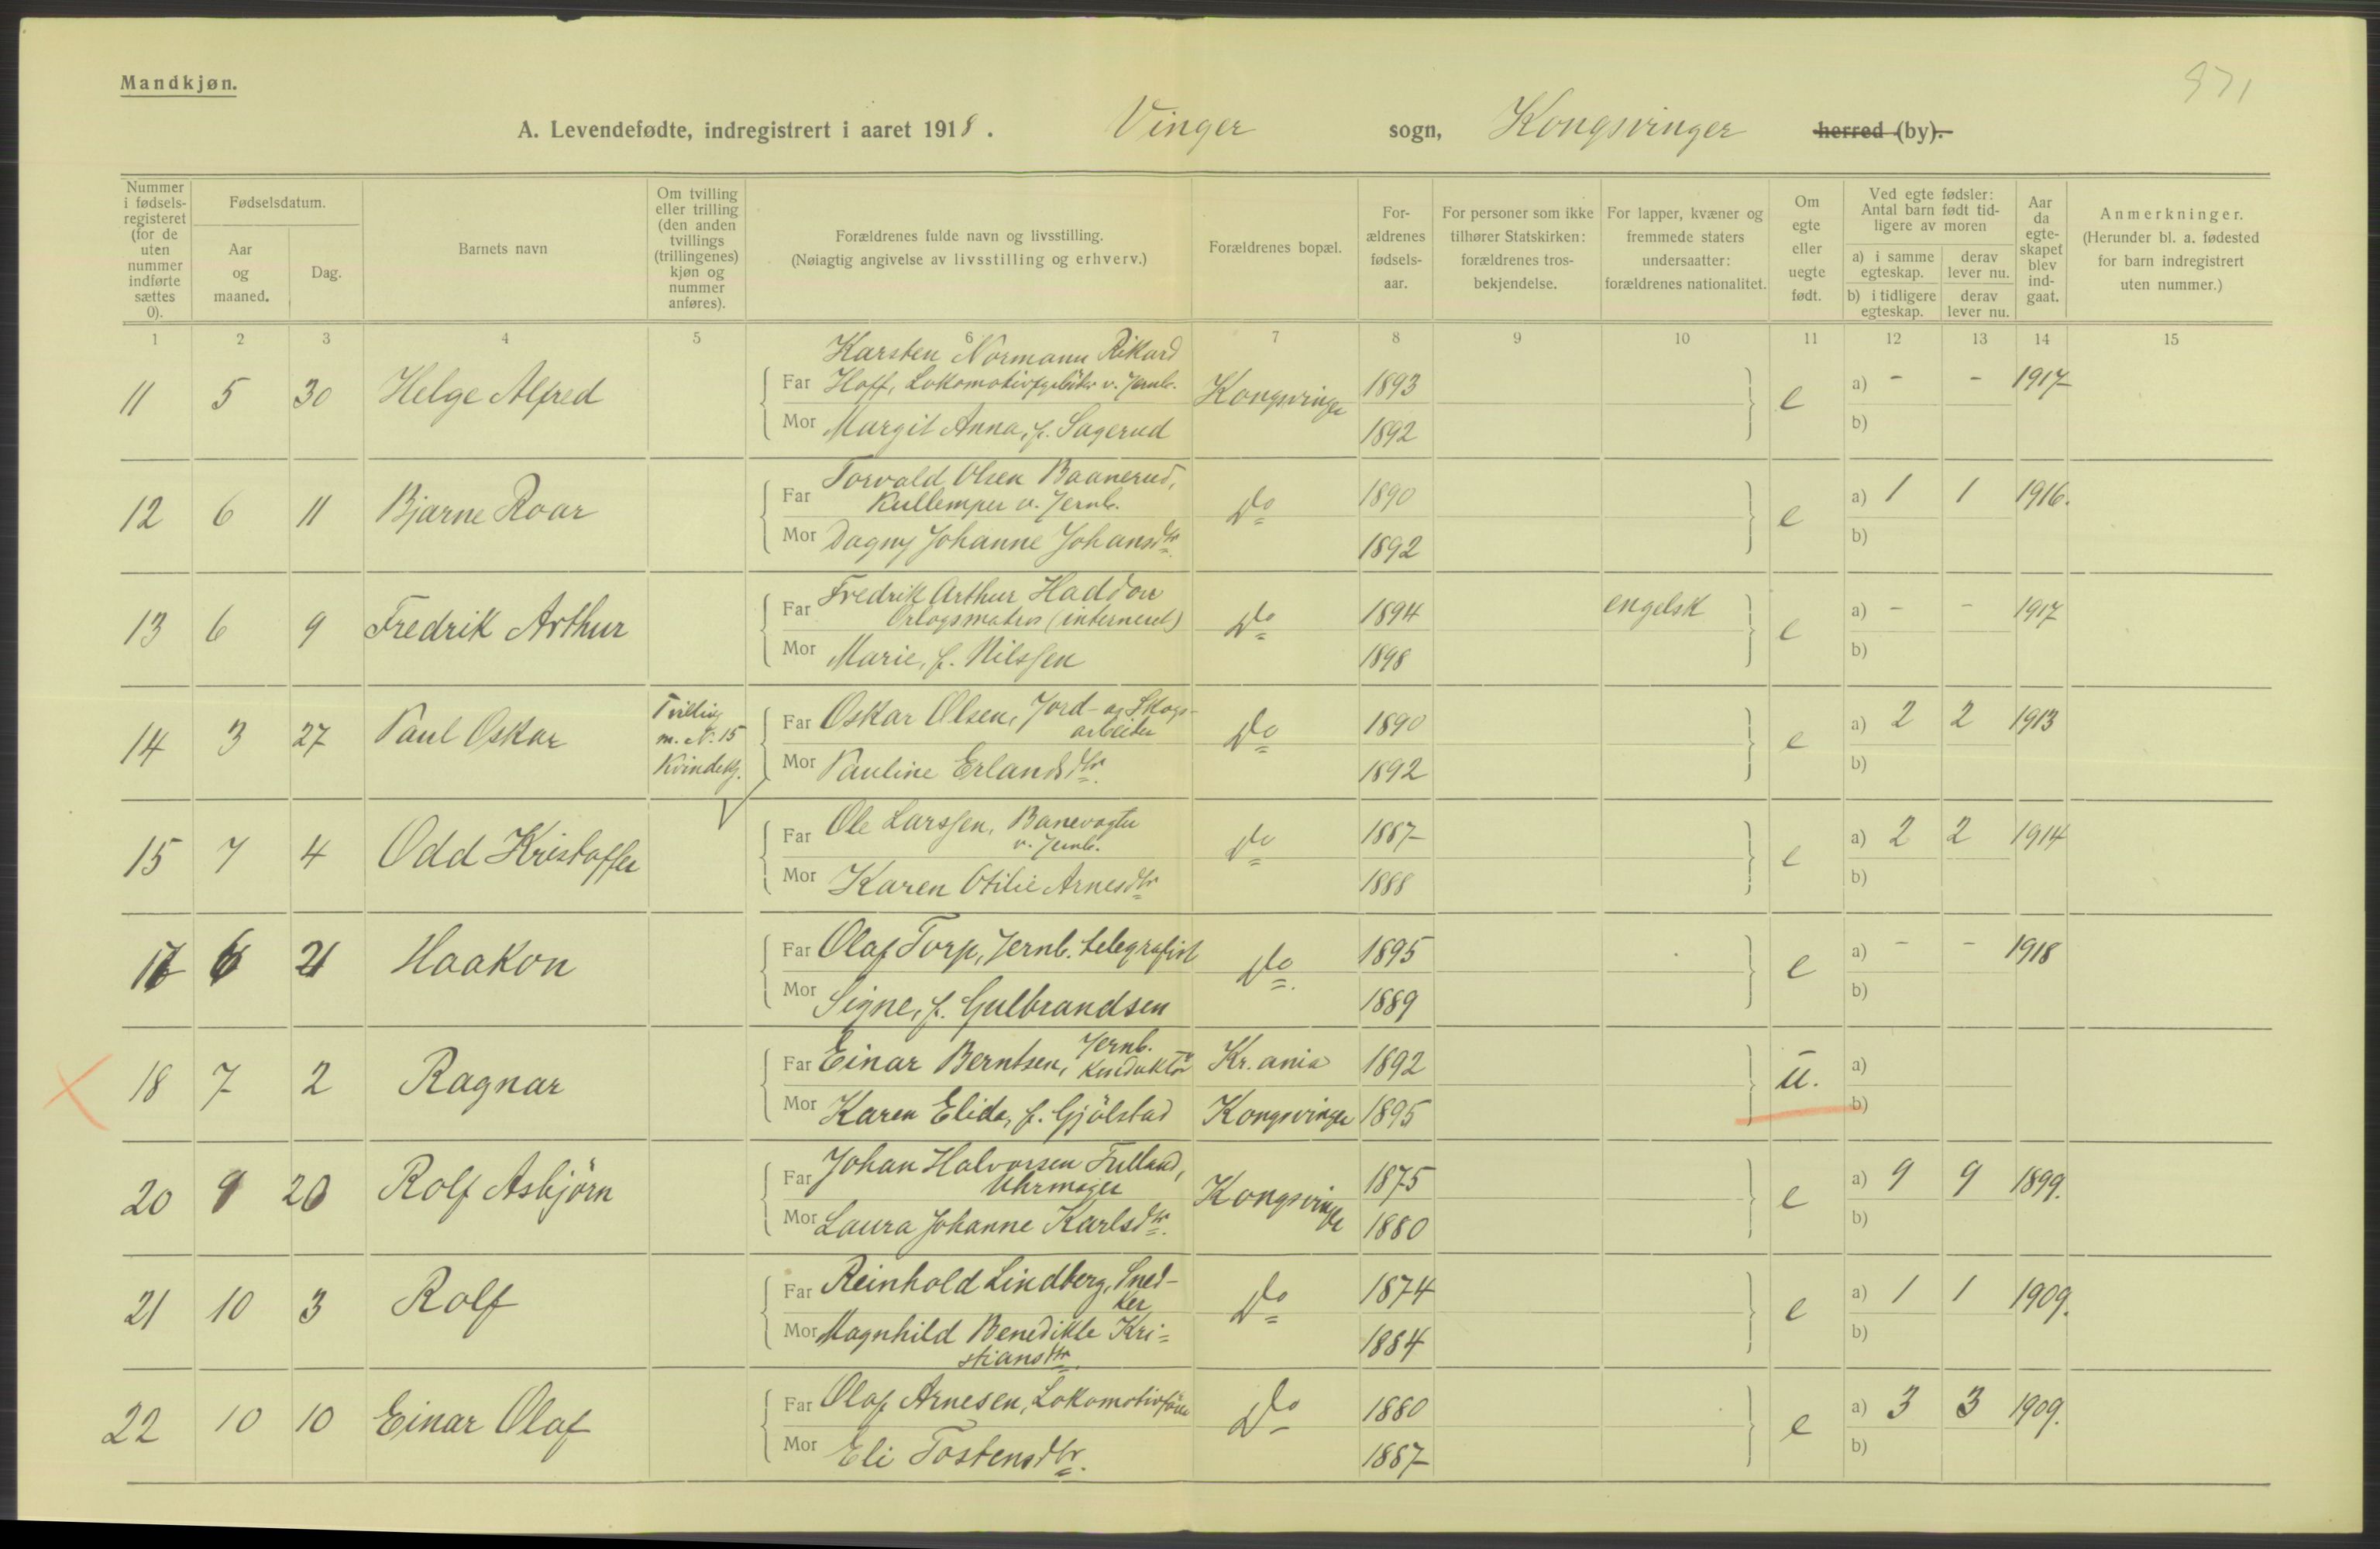 971
Mandkjøn.
A. Levendefødte, indregistrert i aaret 1918. Vinger sogn, Kongsvinger herred (by).
Nummer i fødsels-registeret (for de uten nummer indførte sættes 0).
Fødselsdatum.
Aar og maaned.
Dag.
Barnets navn
Om tvilling eller trilling (den anden tvillings (trillingenes) kjøn og nummer anføres).
Forældrenes fulde navn og livsstilling.
(Nøiagtig angivelse av livsstilling og erhverv.)
Forældrenes bopæl.
For-ældrenes fødsels-aar.
For personer som ikke tilhører Statskirken: forældrenes tros-bekjendelse.
For lapper, kvæner og fremmede staters undersaatter: forældrenes nationalitet.
Om egte eller uegte født.
Ved egte fødsler: Antal barn født tid-ligere av moren
a) i samme egteskap. derav lever nu.
b) i tidligere egteskap. derav lever nu.
Aar da egte-skapet blev ind-gaat.
Anmerkninger.
(Herunder bl. a. fødested for barn indregistrert uten nummer.)
1 2 3 4 5 6 7 8 9 10 11 12 13 14 15
Karsten Normann Rikard
11 5 30 Helge Alfred Far Hoff, Lokomotivpudser v. Jernb. Kongsvinger 1893 e a) - - 1917
Mor Margit Anna, f. Sagerud 1892 b)
Torvald Olsen Baanerud,
12 6 11 Bjarne Roar Far Kullemper v. Jernb. Do 1890 e a) 1 1 1916.
Mor Dagny Johanne Johansdtr. 1892 b)
Fredrik Arthur Haddon
13 6 9 Fredrik Arthur Far Orlogsmatros (interneret) Do 1894 engelsk e a) - - 1917
Mor Marie, f. Nilssen 1898 b)
14 3 27 Paul Oskar Tvilling m. N. 15 Kvindekj. Far Oskar Olsen, Jord- og Skogs-
arbeider Do 1890 e a) 2 2 1913
Mor Pauline Erlandsdtr. 1892 b)
15 7 4 Odd Kristoffer Far Ole Larssen, Banevogter
v. Jernb. Do 1887 e a) 2 2 1914
Mor Karen Otilie Arnesdtr. 1888 b)
6 21 Haakon Far Olaf Torp, Jernb. telegrafist Do 1895 e a) - - 1918
Mor Signe, f. Gulbrandsen 1889 b)
18 7 2 Ragnar Far Einar Berntsen, Jernb.
Konduktör Kr.ania 1892 u. a)
Mor Karen Elida, f. Gjölstad Kongsvinger 1895 b)
20 9 20 Rolf Asbjörn Far Johan Halvorsen Fulland,
Uhrmager Kongsvinger 1875 e a) 9 9 1899.
Mor Laura Johanne Karlsdtr. 1880 b)
21 10 3 Rolf Far Reinhold Lindberg, Sned-
ker Do 1874 e a) 1 1 1909.
Mor Magnhild Benedikte Kri-
stiansdtr. 1884 b)
22 10 10 Einar Olaf Far Olaf Arnesen, Lokomotivförer Do 1880 e a) 3 3 1909.
Mor Eli Tostensdtr. 1887 b)